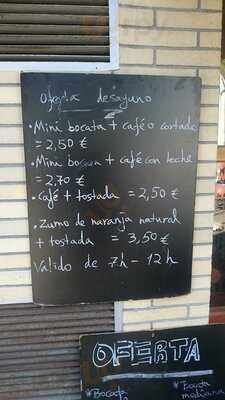 Oferta desayuno
• Mini bocata + café o cortado
= 2,50 €
• Mini bocata + café con leche
= 2,70 €
• Café + tostada = 2,50 €
• Zumo de naranja natural
+ tostada = 3,50 €
Válido de 7h - 12h
OFERTA
* Bocata
* Bocata